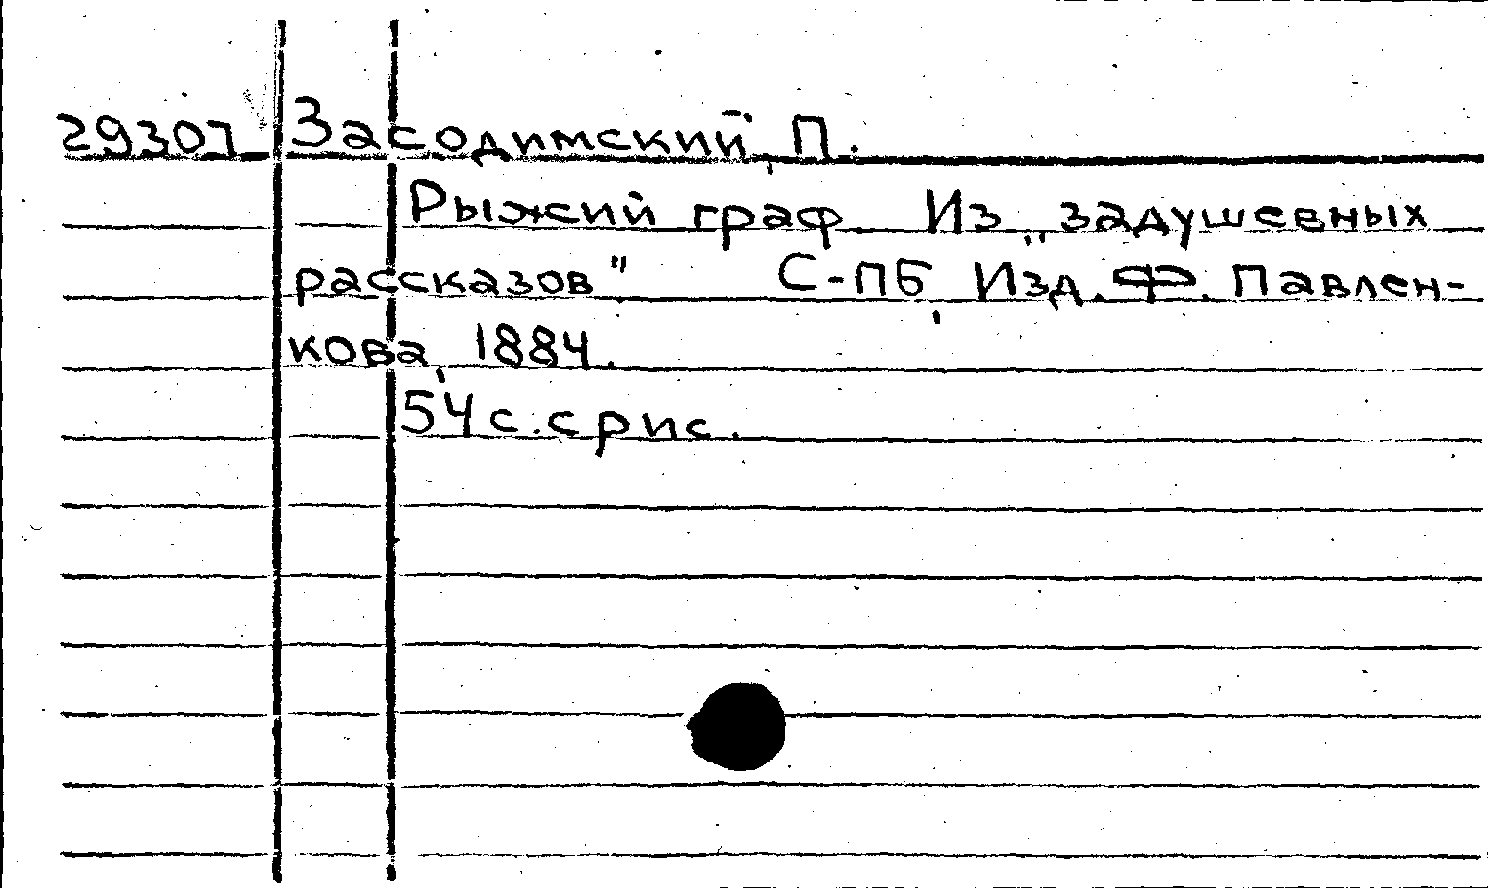 29307 Засодимский, П.
Рыжий граф. Из „задушевных
рассказов". С-ПБ, Изд. Ф. Павлен-
кова, 1884.
54 с. с рис.